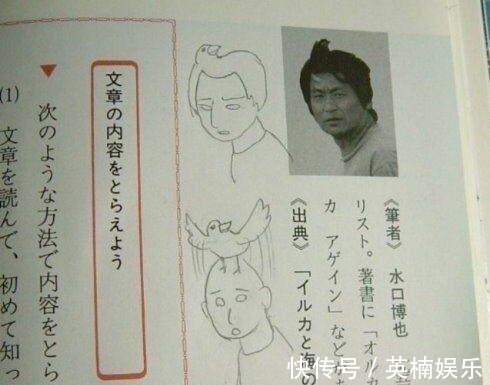 《筆者》 水口博也
リスト。著書に「オル
カ アゲイン」など
《出典》 「イルカと海の
文章の内容をとらえよう
▼ 次のような方法で内容をとら
(1) 文章を読んで、初めて知っ
快传号/英楠娱乐